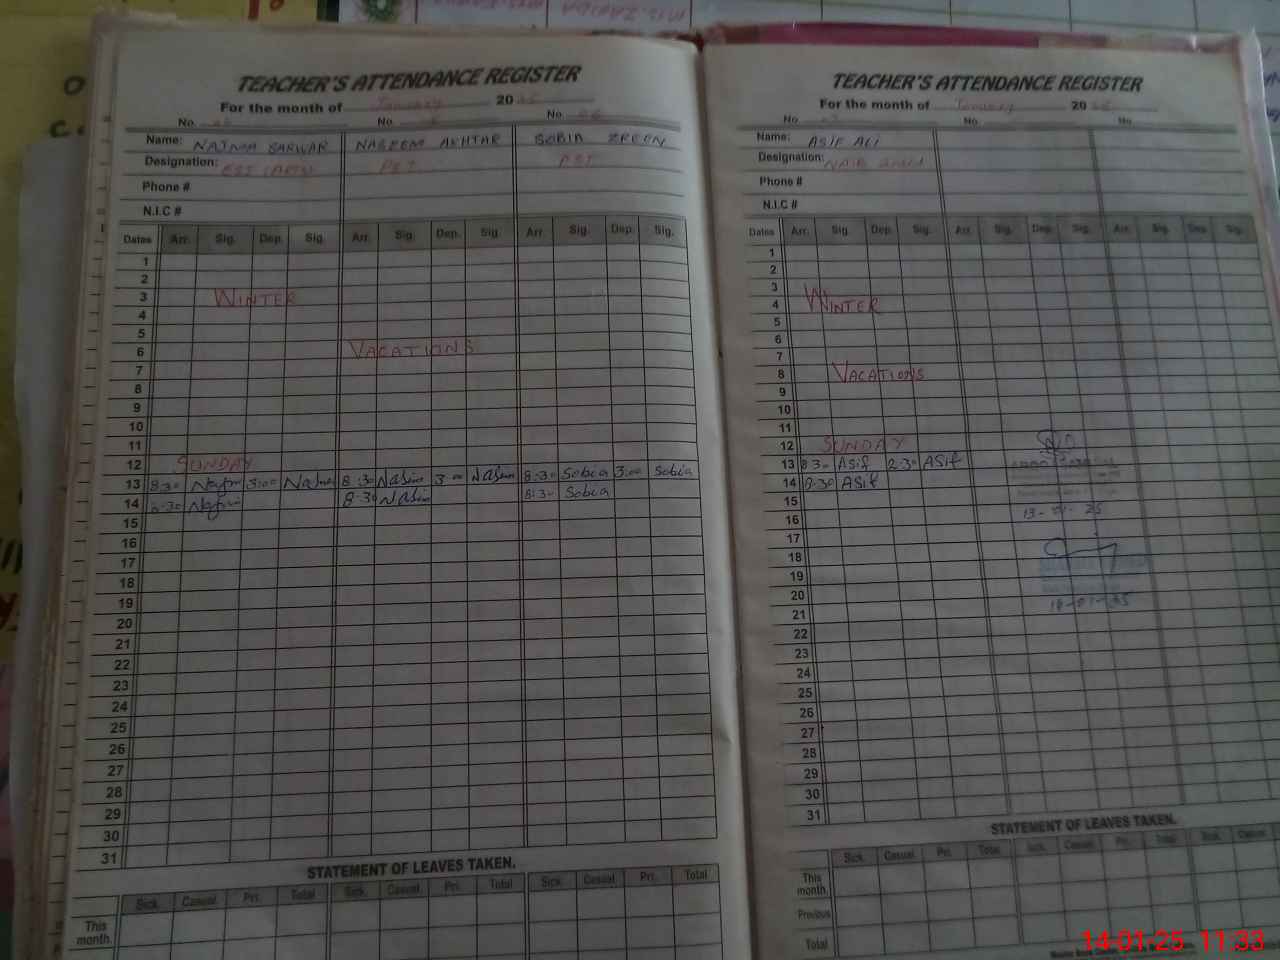 MIS. ZAHIDA
TEACHER'S ATTENDANCE REGISTER
For the month of January 2025
No. No. No.
Name: NAJMA SARWAR NASEEM AKHTAR SOBIA
Designation: PST PST
Phone #
N.I.C #
Dates Arr. Sig. Dep. Sig. Arr. Sig. Dep. Sig. Arr Sig. Dep. Sig.
1
2
3 WINTER
4
5
6 VACATIONS
7
8
9
10
11
12 SUNDAY
13 8:30 Najma 3:00 Najma 8:30 Nasim 3:00 Nasim 8:30 Sobia 3:00 Sobia
14 8:30 Najma 8:30 Nasim 8:30 Sobia
15
16
17
18
19
20
21
22
23
24
25
26
27
28
29
30
31
STATEMENT OF LEAVES TAKEN.
Sick. Casual. Pri. Total Sick. Casual. Pri. Total Sick. Casual. Pri. Total
This month.
TEACHER'S ATTENDANCE REGISTER
For the month of January 2025
No. No. No.
Name: ASIF ALI
Designation: NAIB
Phone #
N.I.C #
Dates Arr. Sig. Dep. Sig. Arr. Sig. Dep. Sig. Arr. Sig. Dep. Sig.
1
2
3
4 WINTER
5
6
7
8 VACATIONS
9
10
11
12 SUNDAY
13 8:30 ASif 2:30 ASif
14 8:30 ASif
15
16 13-01-25
17
18
19
20
21 14-01-25
22
23
24
25
26
27
28
29
30
31
STATEMENT OF LEAVES TAKEN.
Sick. Casual. Pri. Total Sick. Casual. Pri. Total Sick. Casual.
This month.
Previous
Total
14-01-25 11:33